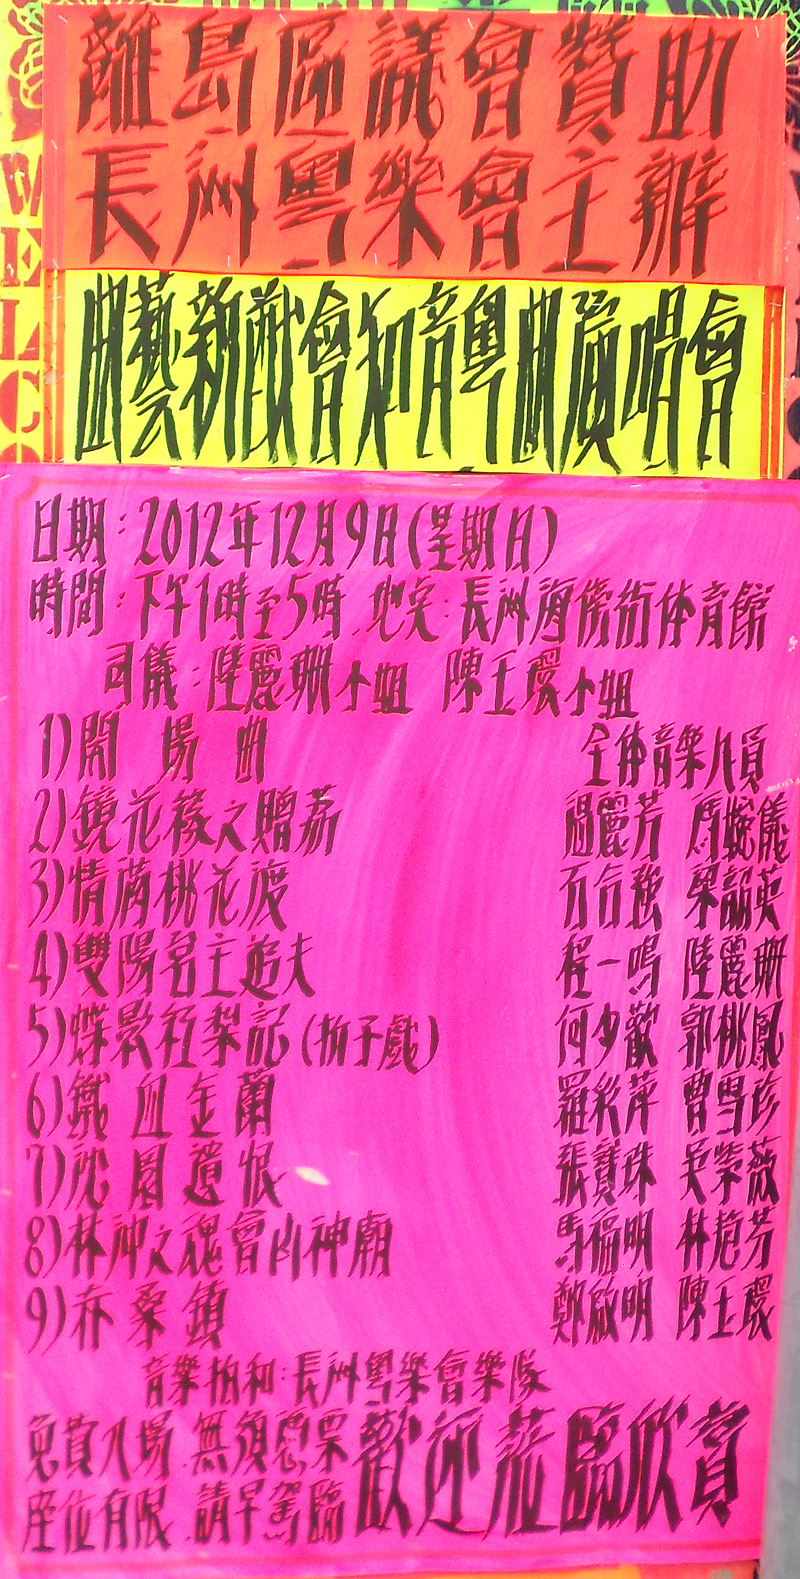 離島區議會贊助
長洲粵樂會主辦
曲藝新猷會知音粵曲演唱會
WELCO
日期：2012年12月9日(星期日)
時間：下午1時至5時 地点：長洲海傍街体育館
司儀：陸麗珊小姐 陳玉環小姐
1)開場曲 全体音樂人員
2)鏡花緣之贈荔 過麗芳 馮婉儀
3)情滿桃花渡 石合強 梁韶英
4)雙陽公主追夫 程一鳴 陸麗珊
5)蝶影紅梨記(折子戲) 何少歡 郭桃鳳
6)鐵血金蘭 羅彩萍 曹雪珍
7)沈園遺恨 張寶珠 吳紫薇
8)林沖之魂會山神廟 馬福明 林艷芳
9)赤桑鎮 鄭啟明 陳玉環
音樂拍和：長洲粵樂會樂隊
免費入場 無須憑票
座位有限 請早駕臨
歡迎蒞臨欣賞